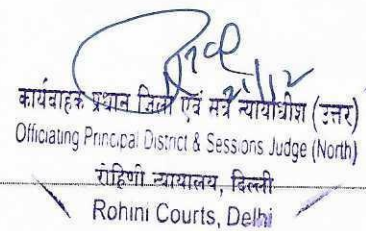 21/12
कार्यवाहक प्रधान जिला एवं सत्र न्यायाधीश (उत्तर)
Officiating Principal District & Sessions Judge (North)
रोहिणी न्यायालय, दिल्ली
Rohini Courts, Delhi